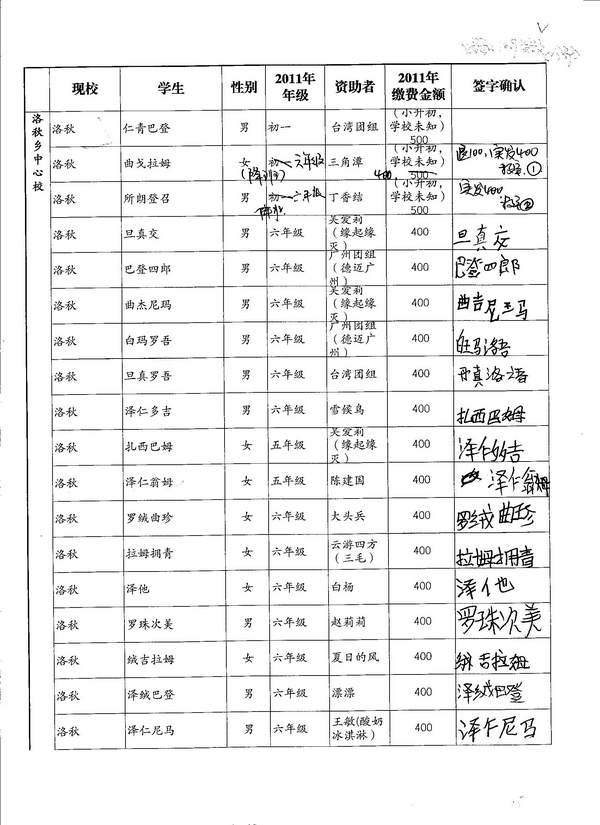 洛秋乡中心校
现校 学生 性别 2011年年级 资助者 2011年缴费金额 签字确认
洛秋 仁青巴登 男 初一 台湾团组 （小升初，学校未知）500
洛秋 曲戈拉姆 女 初一 六年级 三角潭 （小升初，学校未知）500 400 退100，实发400
洛秋 所朗登召 男 初一 六年级 丁香结 （小升初，学校未知）500 实发400
洛秋 旦真交 男 六年级 吴爱莉（缘起缘灭） 400 旦真交
洛秋 巴登四郎 男 六年级 广州团组（德迈广州） 400 巴登四郎
洛秋 曲杰尼玛 男 六年级 吴爱莉（缘起缘灭） 400 曲吉尼玉马
洛秋 白玛罗吾 男 六年级 广州团组（德迈广州） 400
洛秋 旦真罗吾 男 六年级 台湾团组 400
洛秋 泽仁多吉 男 六年级 雪候鸟 400 扎西巴姆
洛秋 扎西巴姆 女 五年级 吴爱莉（缘起缘灭） 400
洛秋 泽仁翁姆 女 五年级 陈建国 400 泽仁翁姆
洛秋 罗绒曲珍 女 六年级 大头兵 400 罗绒曲珍
洛秋 拉姆拥青 女 六年级 云游四方（三毛） 400 拉姆拥青
洛秋 泽他 女 六年级 白杨 400 泽他
洛秋 罗珠次美 男 六年级 赵莉莉 400 罗珠次美
洛秋 绒吉拉姆 女 六年级 夏日的风 400 绒吉拉姆
洛秋 泽绒巴登 男 六年级 漂漂 400 泽绒巴登
洛秋 泽仁尼马 男 六年级 王敏(酸奶冰淇淋） 400 泽仁尼马